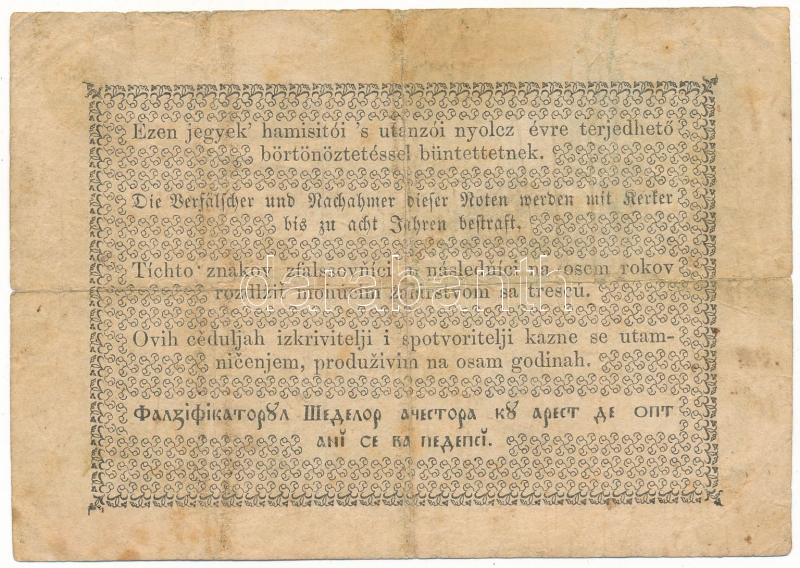 Ezen jegyek’ hamisitói ’s utánzói nyolcz évre terjedhető
börtönöztetéssel büntettetnek.
Die Verfälscher und Nachahmer dieser Noten werden mit Kerker
bis zu acht Jahren bestraft.
Tíchto znakov zfalšovníci a následníci na osem rokov
rozdlžiť mohúcím žalárstvom sa trescú.
darabanth
Ovih ceduljah izkrivitelji i spotvoritelji kazne se utam-
ničenjem, produživim na osam godinah.
Фалзіфікаторꙋл Шеделор ачестора кꙋ арест де опт
ані се ва педепсі.